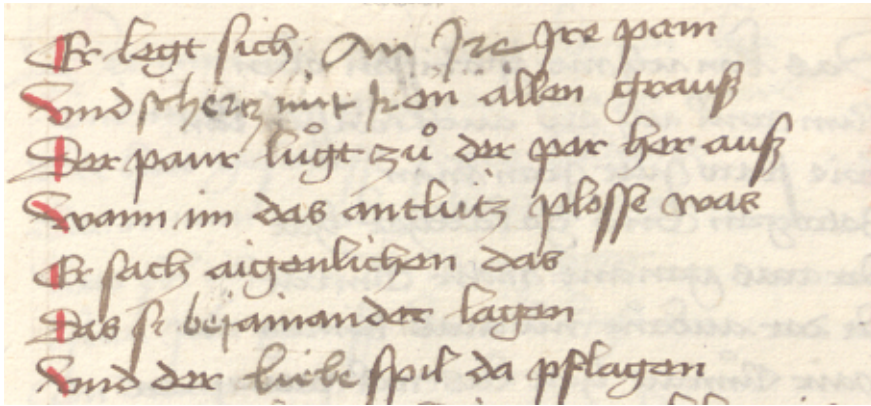 Er legt sich An Ire Ire pain
Vnd scherz mit ir on allen grauß
Der paur lůgt zů der par her auß
Wann im das antlütz plosse was
Er sach aigenlichen das
Das si beiainander lagen
Vnd der liebe spil da pflagen